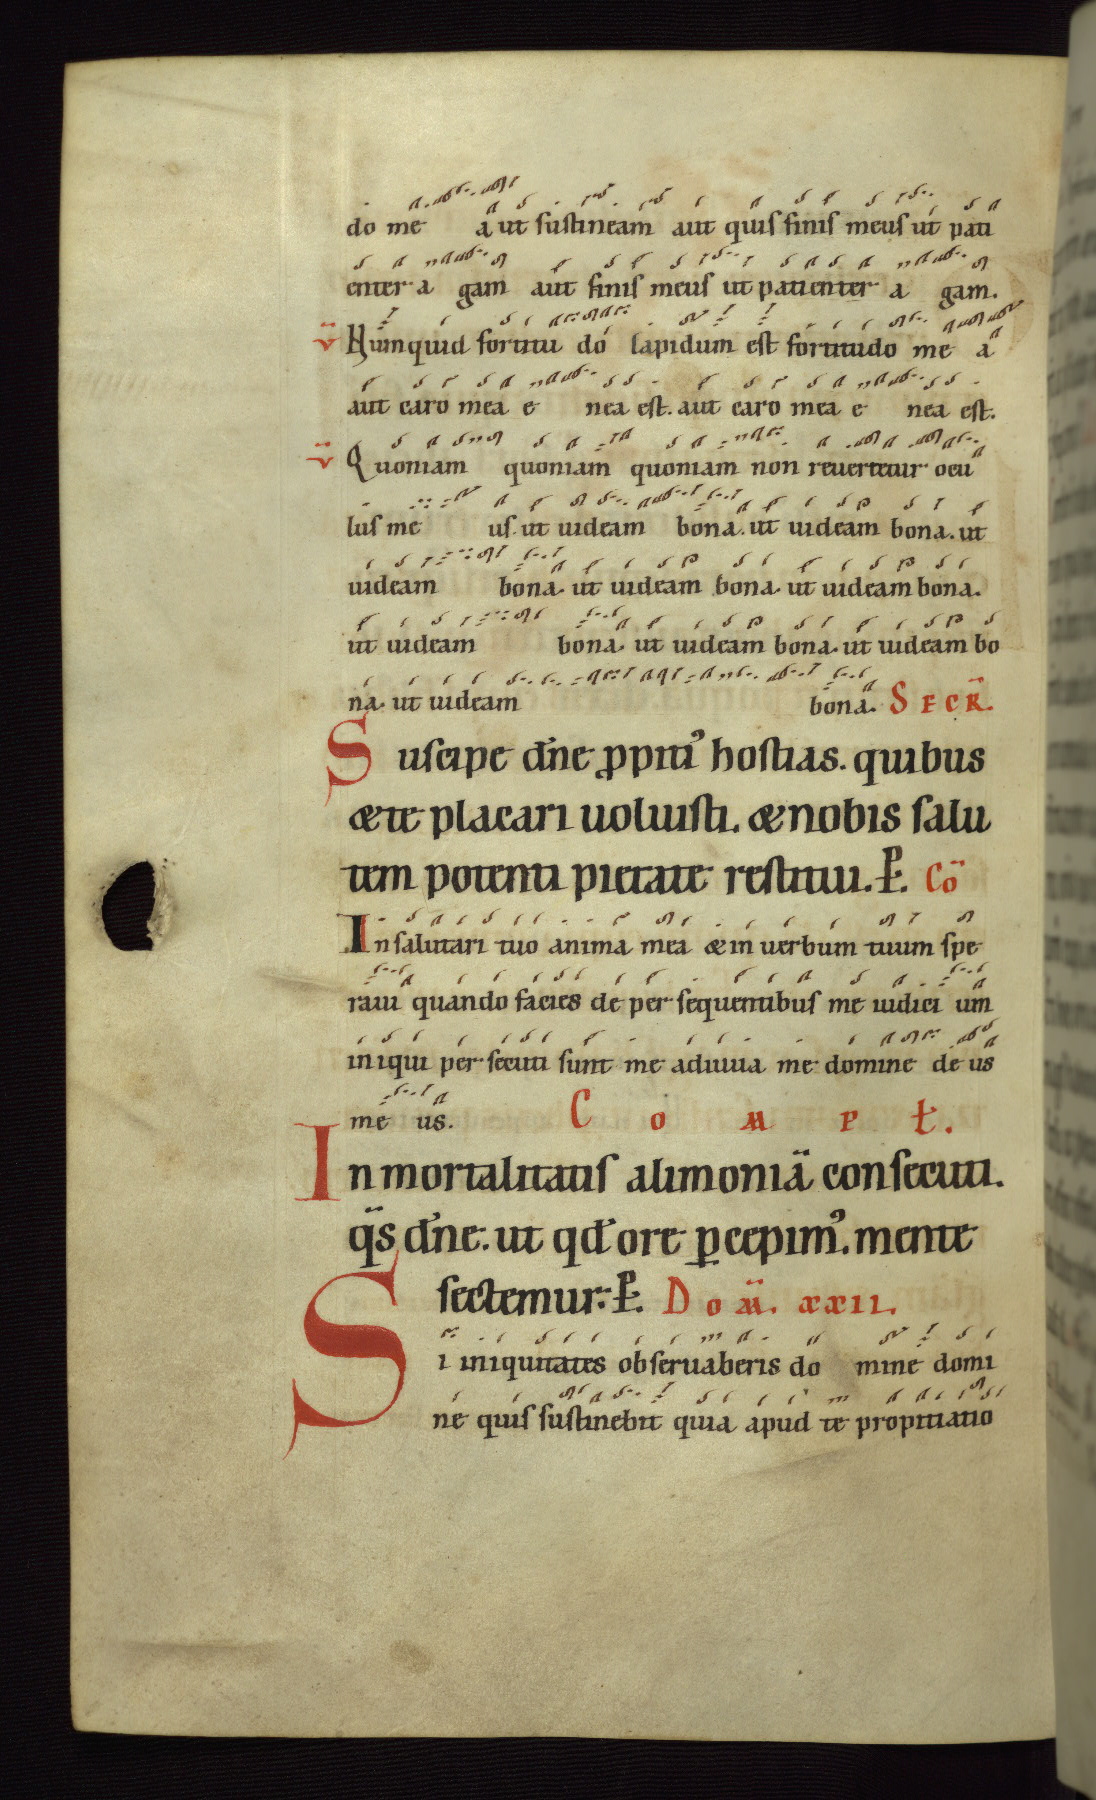 do me a ut sustineam aut quis finis meus ut pati
enter a gam aut finis meus ut patienter a gam.
v̈ Numquid fortitu do lapidum est fortitudo me a
aut caro mea e nea est. aut caro mea e nea est.
v̈ Quoniam quoniam quoniam non reuertetur ocu
lus me us. ut uideam bona. ut uideam bona. ut
uideam bona. ut uideam bona. ut uideam bona.
ut uideam bona. ut uideam bona. ut uideam bo
na. ut uideam bona. SECR̄.
Suscipe dn̄e ꝓpitiꝰ hostias. quibus
& te placari uoluisti. & nobis salu
tem potenti pietate restitui. P̱. Cō
In salutari tuo anima mea & in uerbum tuum spe
raui quando facies de persequentibus me iudici um
iniqui persecuti sunt me adiuua me domine de us
me us. COMPŁ.
Inmortalitatis alimoniā consecuti.
qs̄ dn̄e. ut qd̄ ore ꝑcepimꝰ. mente
sectemur. P̱. Dom̄. xxii.
Si iniquitates obseruaberis do mine domi
ne quis sustinebit quia apud te propitiatio